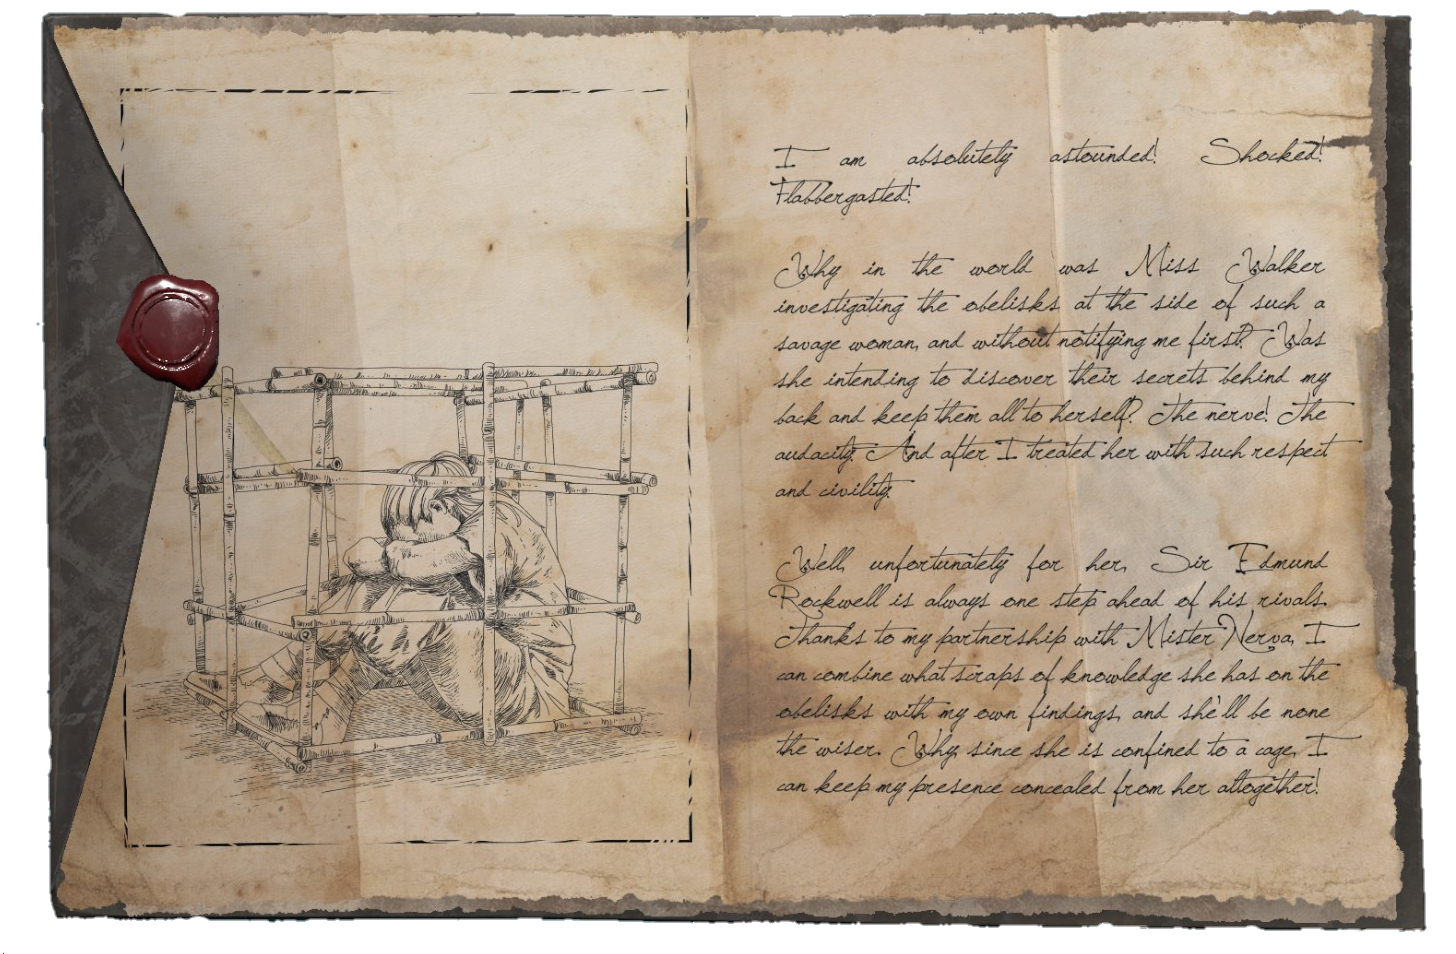 I am absolutely astounded! Shocked!
Flabbergasted!
Why in the world was Miss Walker
investigating the obelisks at the side of such a
savage woman, and without notifying me first? Was
she intending to discover their secrets behind my
back and keep them all to herself? The nerve! The
audacity. And after I treated her with such respect
and civility.
Well, unfortunately for her, Sir Edmund
Rockwell is always one step ahead of his rivals.
Thanks to my partnership with Mister Nerva, I
can combine what scraps of knowledge she has on the
obelisks with my own findings, and she'll be none
the wiser. Why, since she is confined to a cage, I
can keep my presence concealed from her altogether!